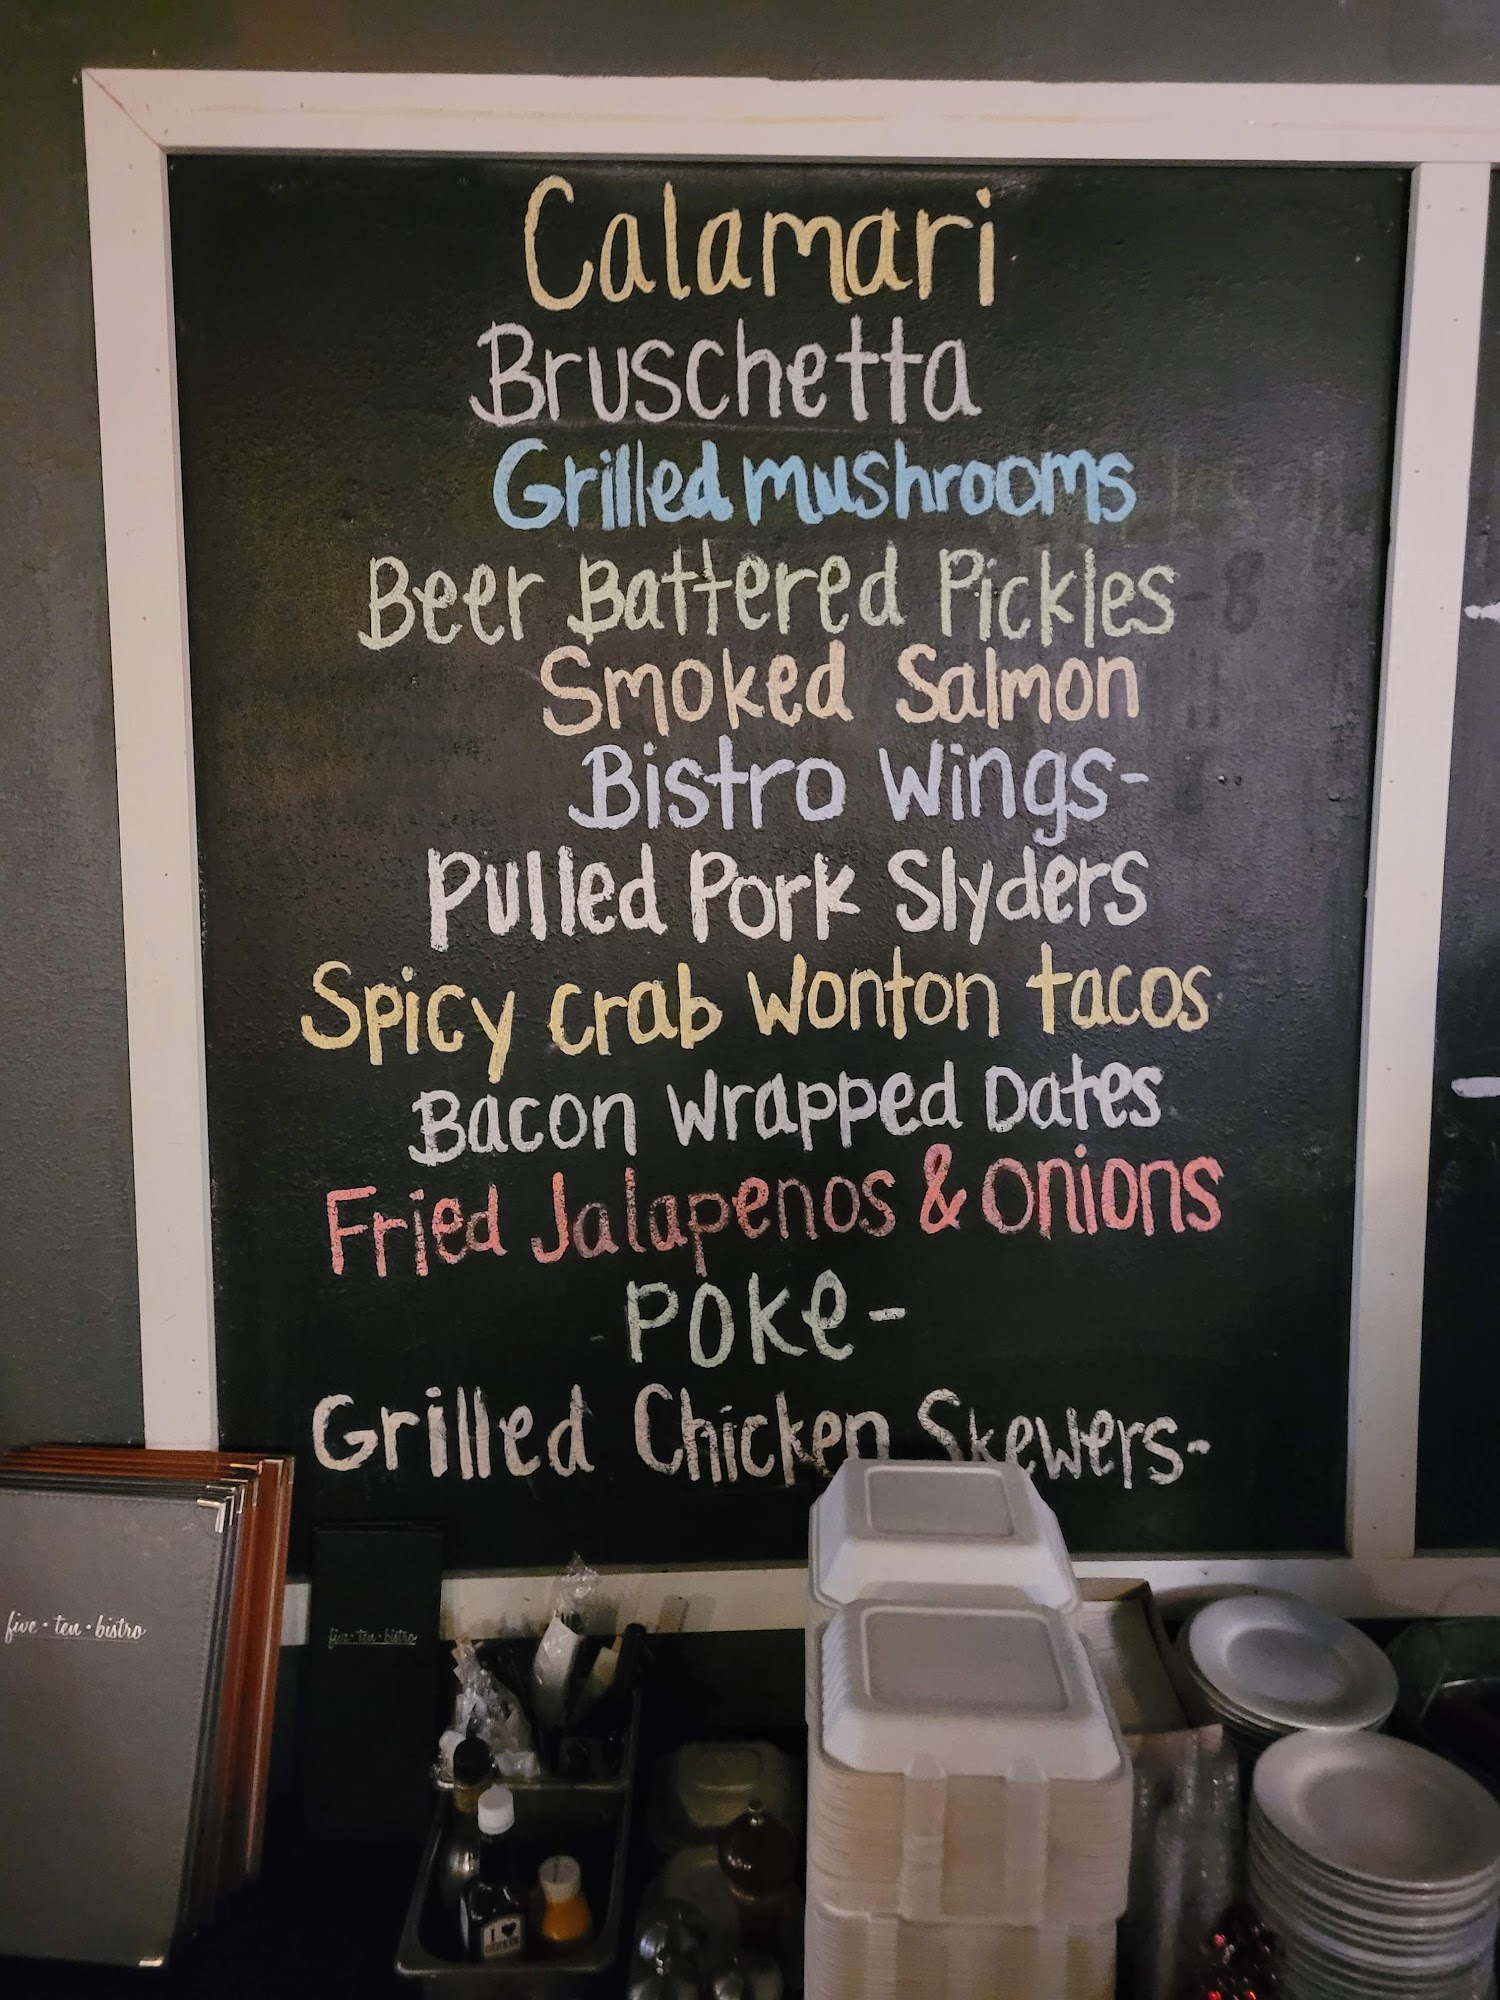 Calamari
Bruschetta
Grilled mushrooms
Beer Battered Pickles
Smoked Salmon
Bistro Wings-
Pulled Pork Slyders
Spicy crab Wonton tacos
Bacon Wrapped Dates
Fried Jalapenos & onions
POKE-
Grilled Chicken Skewers-
five • ten • bistro
five • ten • bistro